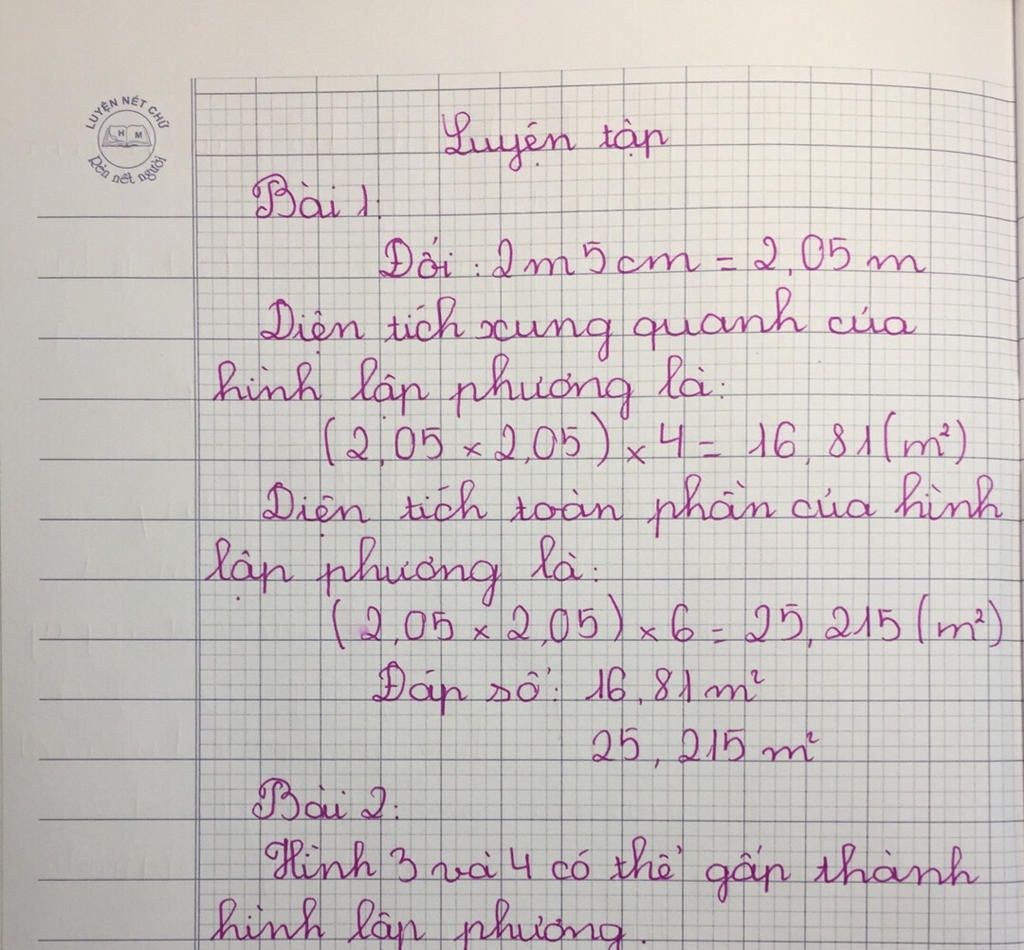 LUYỆN NÉT CHỮ
H M
Rèn nết người
Luyện tập
Bài 1:
Đổi : 2m5cm = 2,05 m
Diện tích xung quanh của
hình lập phương là:
(2,05 x 2,05) x 4 = 16,81(m²)
Diện tích toàn phần của hình
lập phương là:
(2,05 x 2,05) x 6 = 25,215 (m²)
Đáp số: 16,81 m²
25,215 m²
Bài 2:
Hình 3 và 4 có thể gấp thành
hình lập phương.